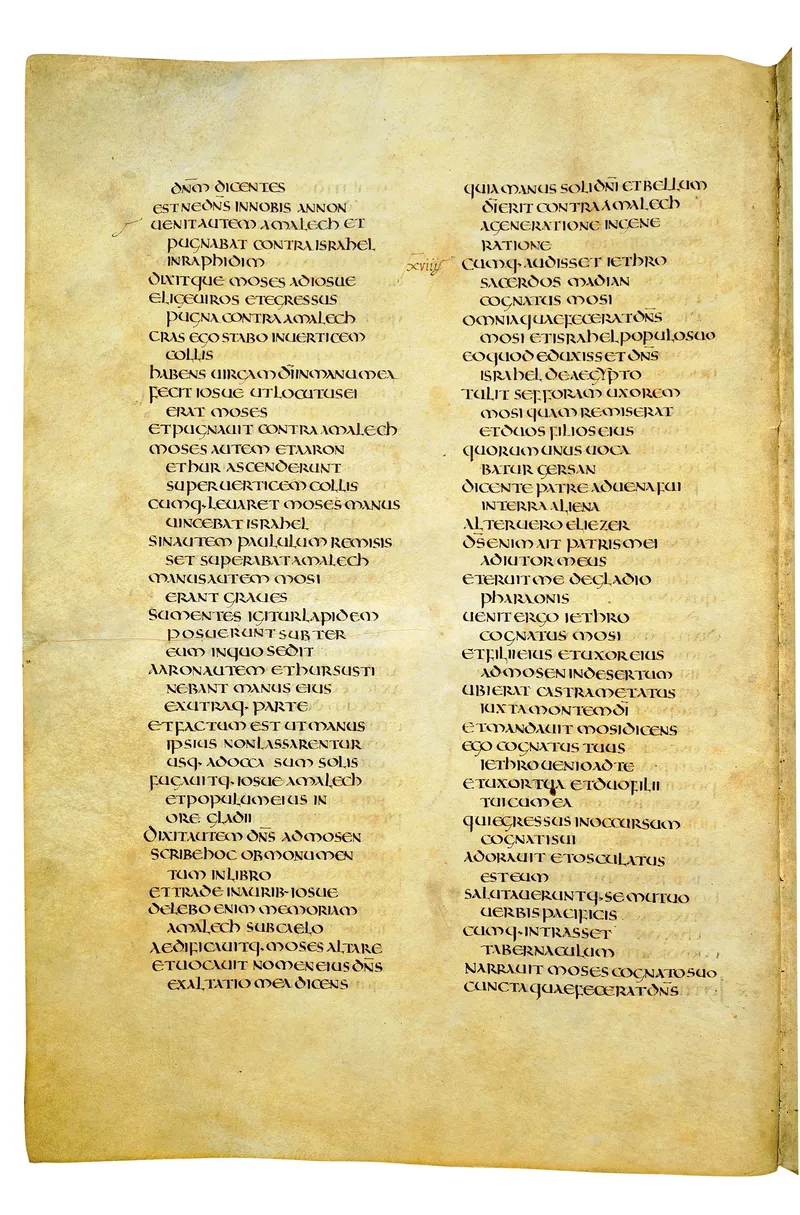 dn̄m dicentes
estnedn̄s innobis annon
uenitautem amalech et
pugnabat contra israhel
inraphidim
dixitque moses adiosue
eligeuiros etegressus
pugna contra amalech
cras ego stabo inuerticem
collis
habens uirgam dī inmanumea
fecit iosue utlocutusei
erat moses
etpugnauit contra amalech
moses autem etaaron
ethur ascenderunt
superuerticem collis
cumq· leuaret moses manus
uincebat israhel
sinautem paululum remisis
set superabat amalech
manusautem mosi
erant graues
sumentes igiturlapidem
posuerunt subter
eum inquo sedit
aaronautem ethursusti
nebant manus eius
exutraq· parte
etfactum est utmanus
ipsius nonlassarentur
usq· adocca sum solis
fugauitq· iosue amalech
etpopulumeius in
ore gladii
dixitautem dn̄s admosen
scribehoc obmonumen
tum inlibro
ettrade inaurib· iosue
delebo enim memoriam
amalech subcaelo
aedificauitq· moses altare
etuocauit nomeneius dn̄s
exaltatio mea dicens
quia manus soli dn̄i etbellum
dīerit contra amalech
ageneratione ingene
ratione
xviiij
cumq· audisset iethro
sacerdos madian
cognatus mosi
omniaquaefecerat dn̄s
mosi etisrahel populosuo
eoquod eduxisset dn̄s
israhel deaegypto
tulit sefforam uxorem
mosi quam remiserat
etduos filioseius
quorumunus uoca
batur gersan
dicente patre aduenafui
interra aliena
alteruero eliezer
ds̄enim ait patrismei
adiutor meus
eteruitme degladio
pharaonis
uenitergo iethro
cognatus mosi
etfiliieius etuxoreius
admosen indesertum
ubierat castrametatus
iuxtamontemdī
etmandauit mosidicens
ego cognatus tuus
iethro uenioadte
etuxortua etduofilii
tuicumea
quiegressus inoccursum
cognatisui
adorauit etosculatus
esteum
salutaueruntq· semutuo
uerbispacificis
cumq· intrasset
tabernaculum
narrauit moses cognatosuo
cuncta quaefecerat dn̄s